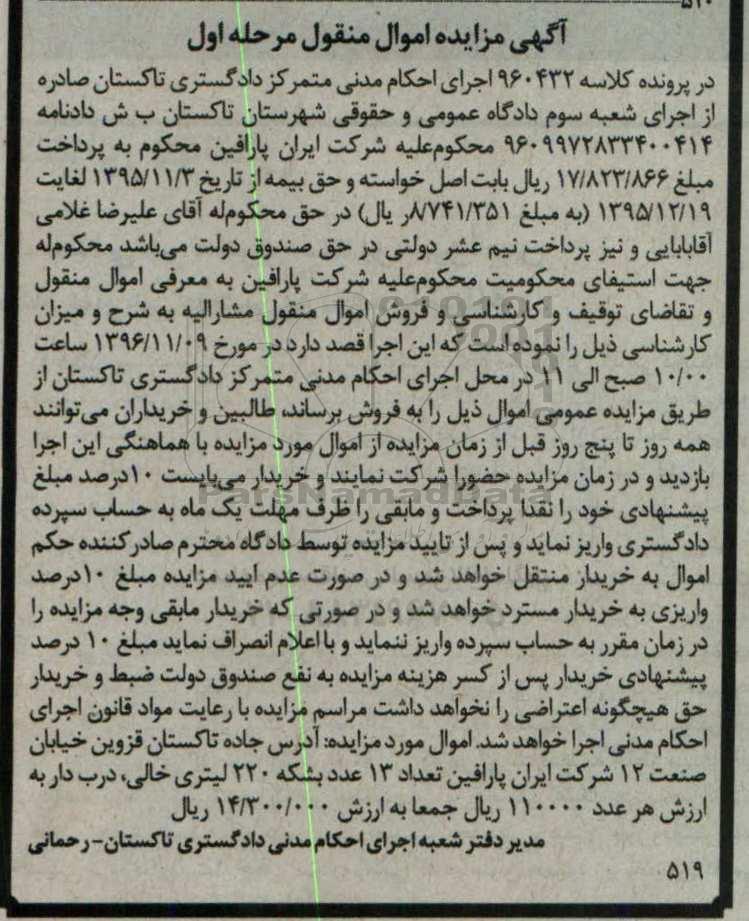 ۵۲۰
آگهی مزایده اموال منقول مرحله اول
در پرونده کلاسه ۹۶۰۴۳۲ اجرای احکام مدنی متمرکز دادگستری تاکستان صادره
از اجرای شعبه سوم دادگاه عمومی و حقوقی شهرستان تاکستان ب ش دادنامه
۹۶۰۹۹۷۲۸۳۳۴۰۰۴۱۴ محکوم‌علیه شرکت ایران پارافین محکوم به پرداخت
مبلغ ۱۷/۸۲۳/۸۶۶ ریال بابت اصل خواسته و حق بیمه از تاریخ ۱۳۹۵/۱۱/۳ لغایت
۱۳۹۵/۱۲/۱۹ (به مبلغ ۸/۷۴۱/۳۵۱ر یال) در حق محکوم‌له آقای علیرضا غلامی
آقابابایی و نیز پرداخت نیم عشر دولتی در حق صندوق دولت می‌باشد محکوم‌له
جهت استیفای محکومیت محکوم‌علیه شرکت پارافین به معرفی اموال منقول
و تقاضای توقیف و کارشناسی و فروش اموال منقول مشارالیه به شرح و میزان
کارشناسی ذیل را نموده است که این اجرا قصد دارد در مورخ ۱۳۹۶/۱۱/۰۹ ساعت
۱۰/۰۰ صبح الی ۱۱ در محل اجرای احکام مدنی متمرکز دادگستری تاکستان از
طریق مزایده عمومی اموال ذیل را به فروش برساند، طالبین و خریداران می‌توانند
همه روز تا پنج روز قبل از زمان مزایده از اموال مورد مزایده با هماهنگی این اجرا
بازدید و در زمان مزایده حضورا شرکت نمایند و خریدار می‌بایست ۱۰درصد مبلغ
پیشنهادی خود را نقدا پرداخت و مابقی را ظرف مهلت یک ماه به حساب سپرده
دادگستری واریز نماید و پس از تایید مزایده توسط دادگاه محترم صادرکننده حکم
اموال به خریدار منتقل خواهد شد و در صورت عدم ایید مزایده مبلغ ۱۰درصد
واریزی به خریدار مسترد خواهد شد و در صورتی که خریدار مابقی وجه مزایده را
در زمان مقرر به حساب سپرده واریز ننماید و با اعلام انصراف نماید مبلغ ۱۰ درصد
پیشنهادی خریدار پس از کسر هزینه مزایده به نفع صندوق دولت ضبط و خریدار
حق هیچگونه اعتراضی را نخواهد داشت مراسم مزایده با رعایت مواد قانون اجرای
احکام مدنی اجرا خواهد شد. اموال مورد مزایده: آدرس جاده تاکستان قزوین خیابان
صنعت ۱۲ شرکت ایران پارافین تعداد ۱۳ عدد بشکه ۲۲۰ لیتری خالی، درب دار به
ارزش هر عدد ۱۱۰۰۰۰۰ ریال جمعا به ارزش ۱۴/۳۰۰/۰۰۰ ریال
مدیر دفتر شعبه اجرای احکام مدنی دادگستری تاکستان- رحمانی
۵۱۹
ParsNamadData